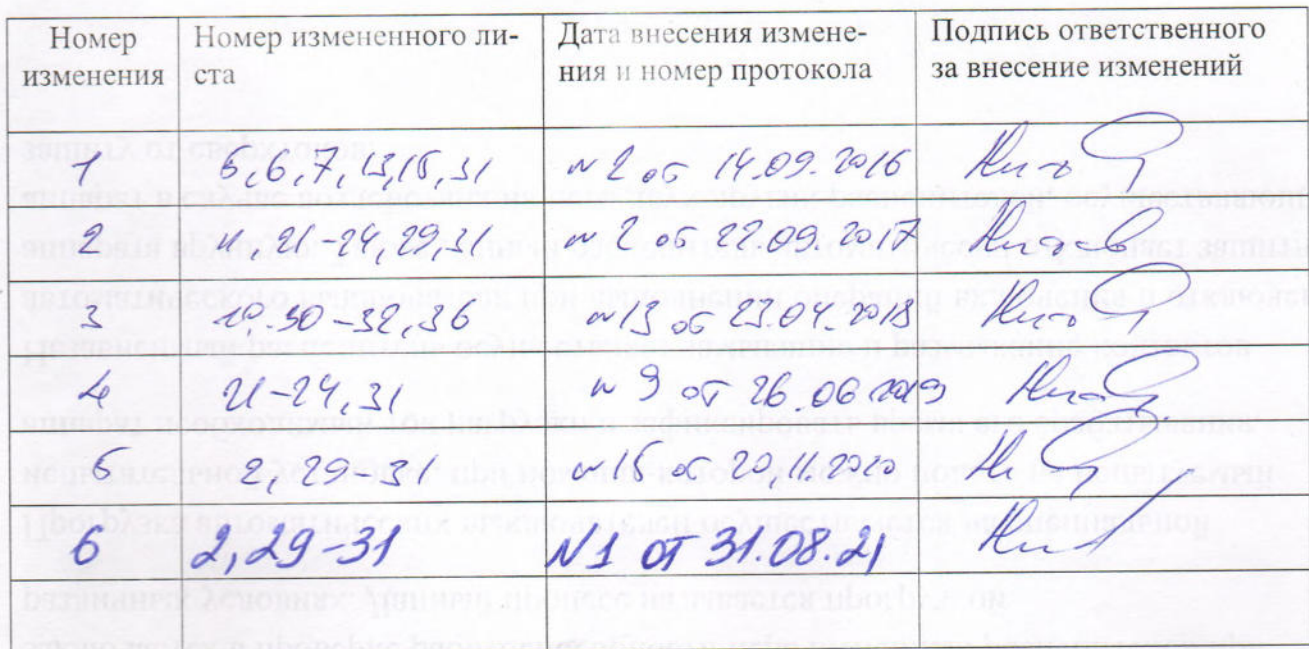 Номер
изменения
Номер измененного ли-
ста
Дата внесения измене-
ния и номер протокола
Подпись ответственного
за внесение изменений
1 5,6,7,13,15,31 №2 от 14.09.2016
2 11,21-24,29,31 №2 от 22.09.2017
3 30-32,36 №13 от 23.04.2018
4 21-24,31 №9 от 26.06.2019
5 2,29-31 №15 от 20.11.2020
6 2,29-31 №1 от 31.08.21